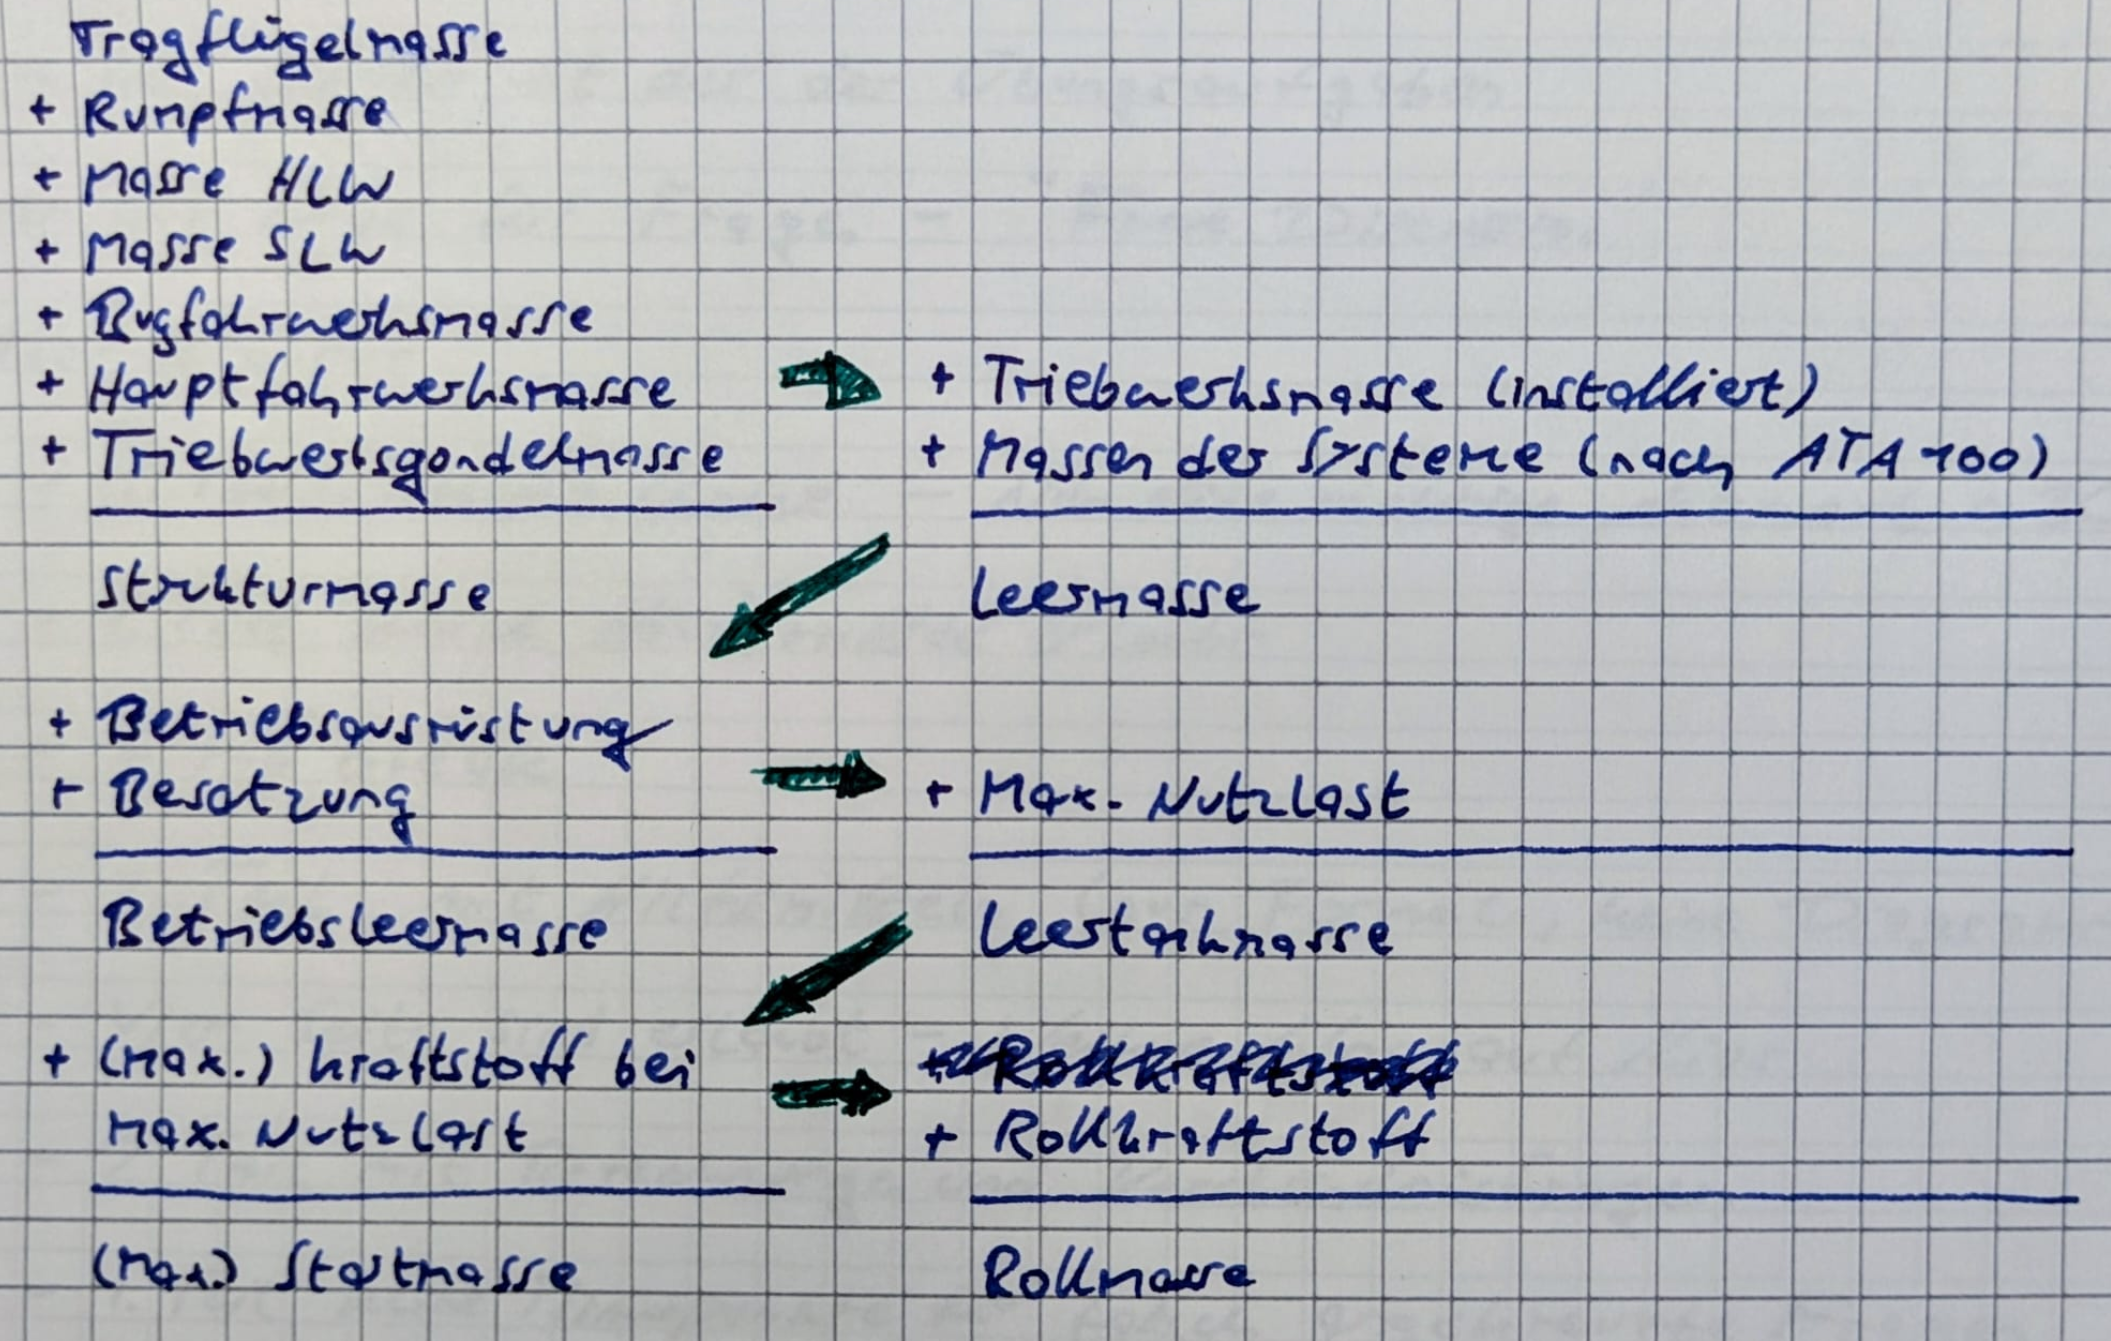 Tragflügelmasse
+ Rumpfmasse
+ Masse HLW
+ Masse SLW
+ Bugfahrwerksmasse
+ Hauptfahrwerksmasse
+ Triebwerksgondelmasse
Strukturmasse
+ Triebwerksmasse (installiert)
+ Massen der Systeme (nach ATA 100)
Leermasse
+ Betriebsausrüstung
+ Besatzung
Betriebsleermasse
+ Max. Nutzlast
Leertankmasse
+ (Max.) Kraftstoff bei
Max. Nutzlast
(Max.) Startmasse
+ Rollkraftstoff
+ Rollkraftstoff
Rollmasse